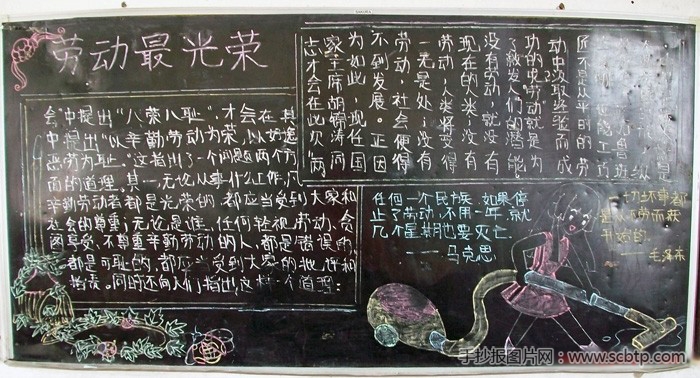 劳动最光荣
匠不是从平时的劳
动中汲取经验而成
功的史劳动就是为
了激发人们的潜能
没有劳动，就没有
现在的人类；没有
劳动，人类将变得
一无是处；没有
劳动，社会便得
不到发展。正因
为如此，现任国
家主席胡锦涛同
志才会在此次“两
会”中提出“八荣八耻”，才会在其
中提出“以辛勤劳动为荣，以好逸
恶劳为耻。”这指出了一个问题两个方
面的道理。其一，无论从事什么工作，凡
辛勤劳动者都是光荣的，都应当受到大家和
社会的尊重；无论是谁，任何轻视劳动、贪
图享受、不尊重辛勤劳动的人，都是错误的
都是可耻的，都应当受到大家的批评和
谴责。同时还向人们指出这样一个道理：
任何一个民族，如果停
止了劳动，不用一年，就
几个星期也要灭亡
——马克思
一切坏事都
是从不劳而获
开始的
——毛泽东
手抄报图片网：www.scbtp.com